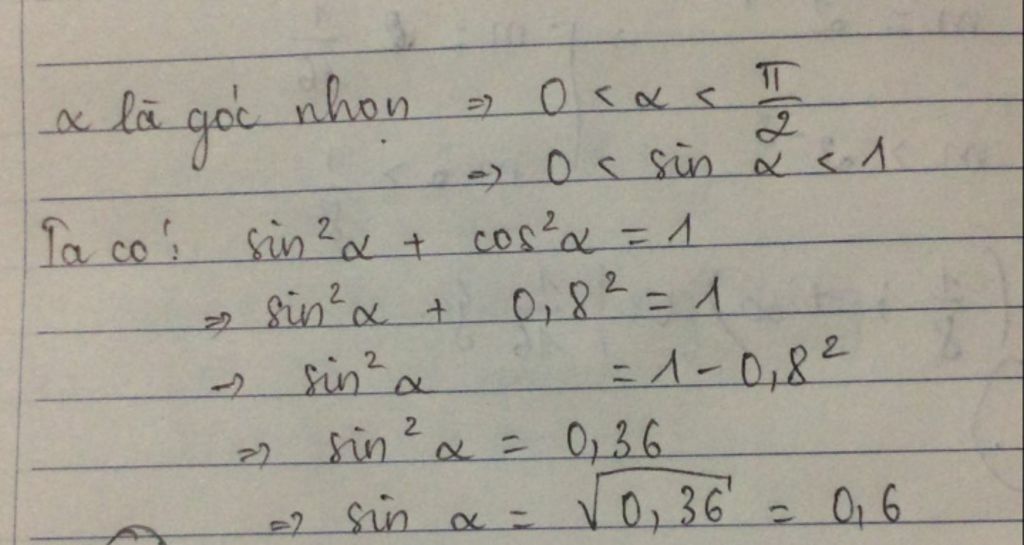 α là góc nhọn => 0 < α < π/2
=> 0 < sin α < 1
Ta có: sin²α + cos²α = 1
=> sin²α + 0,8² = 1
=> sin²α = 1 - 0,8²
=> sin²α = 0,36
=> sin α = √0,36 = 0,6